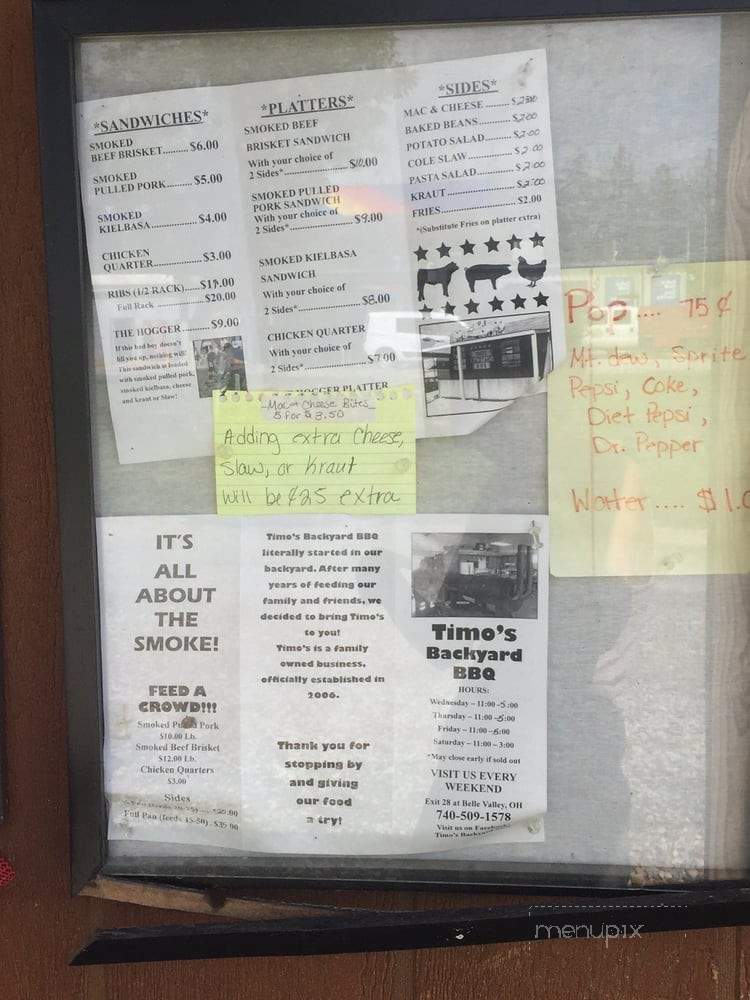 *SANDWICHES*
SMOKED
BEEF BRISKET.......... $6.00
SMOKED
PULLED PORK........ $5.00
SMOKED
KIELBASA ................ $4.00
CHICKEN
QUARTER................. $3.00
RIBS (1/2 RACK)......
Full Rack ................ $20.00
THE HOGGER .......... $9.00
If this bad boy doesn't
fill you up, nothing will!
This sandwich is loaded
with smoked pulled pork,
smoked kielbasa, cheese
and kraut or Slaw!
*PLATTERS*
SMOKED BEEF
BRISKET SANDWICH
With your choice of
2 Sides*....................... $10.00
SMOKED PULLED
PORK SANDWICH
With your choice of
2 Sides*....................... $9.00
SMOKED KIELBASA
SANDWICH
With your choice of
2 Sides*....................... $8.00
CHICKEN QUARTER
With your choice of
2 Sides*....................... $7.00
HOGGER PLATTER
*SIDES*
MAC & CHEESE ........
BAKED BEANS.......... $2.00
POTATO SALAD........ $2.00
COLE SLAW.............. $2.00
PASTA SALAD........... $2.00
KRAUT ...................... $2.00
FRIES......................... $2.00
*(Substitute Fries on platter extra)
Mac & Cheese Bites
5 for $3.50
Adding extra Cheese,
Slaw, or Kraut
will be $.25 extra
Pop.... 75¢
Mt. dew, Sprite
Pepsi, Coke,
Diet Pepsi,
Dr. Pepper
Watter.... $1.0
IT'S
ALL
ABOUT
THE
SMOKE!
FEED A
CROWD!!!
Smoked Pulled Pork
$10.00 Lb.
Smoked Beef Brisket
$12.00 Lb.
Chicken Quarters
$3.00
Sides
Full Pan (feeds 35-50) - $35.00
Timo's Backyard BBQ
literally started in our
backyard. After many
years of feeding our
family and friends, we
decided to bring Timo's
to you!
Timo's is a family
owned business,
officially established in
2006.
Thank you for
stopping by
and giving
our food
a try!
Timo's
Backyard
BBQ
HOURS:
Wednesday – 11:00 -5:00
Thursday – 11:00 -5:00
Friday – 11:00 -5:00
Saturday – 11:00 – 3:00
*May close early if sold out
VISIT US EVERY
WEEKEND
Exit 28 at Belle Valley, OH
740-509-1578
Visit us on Facebook
Timo's Backyard
menupix